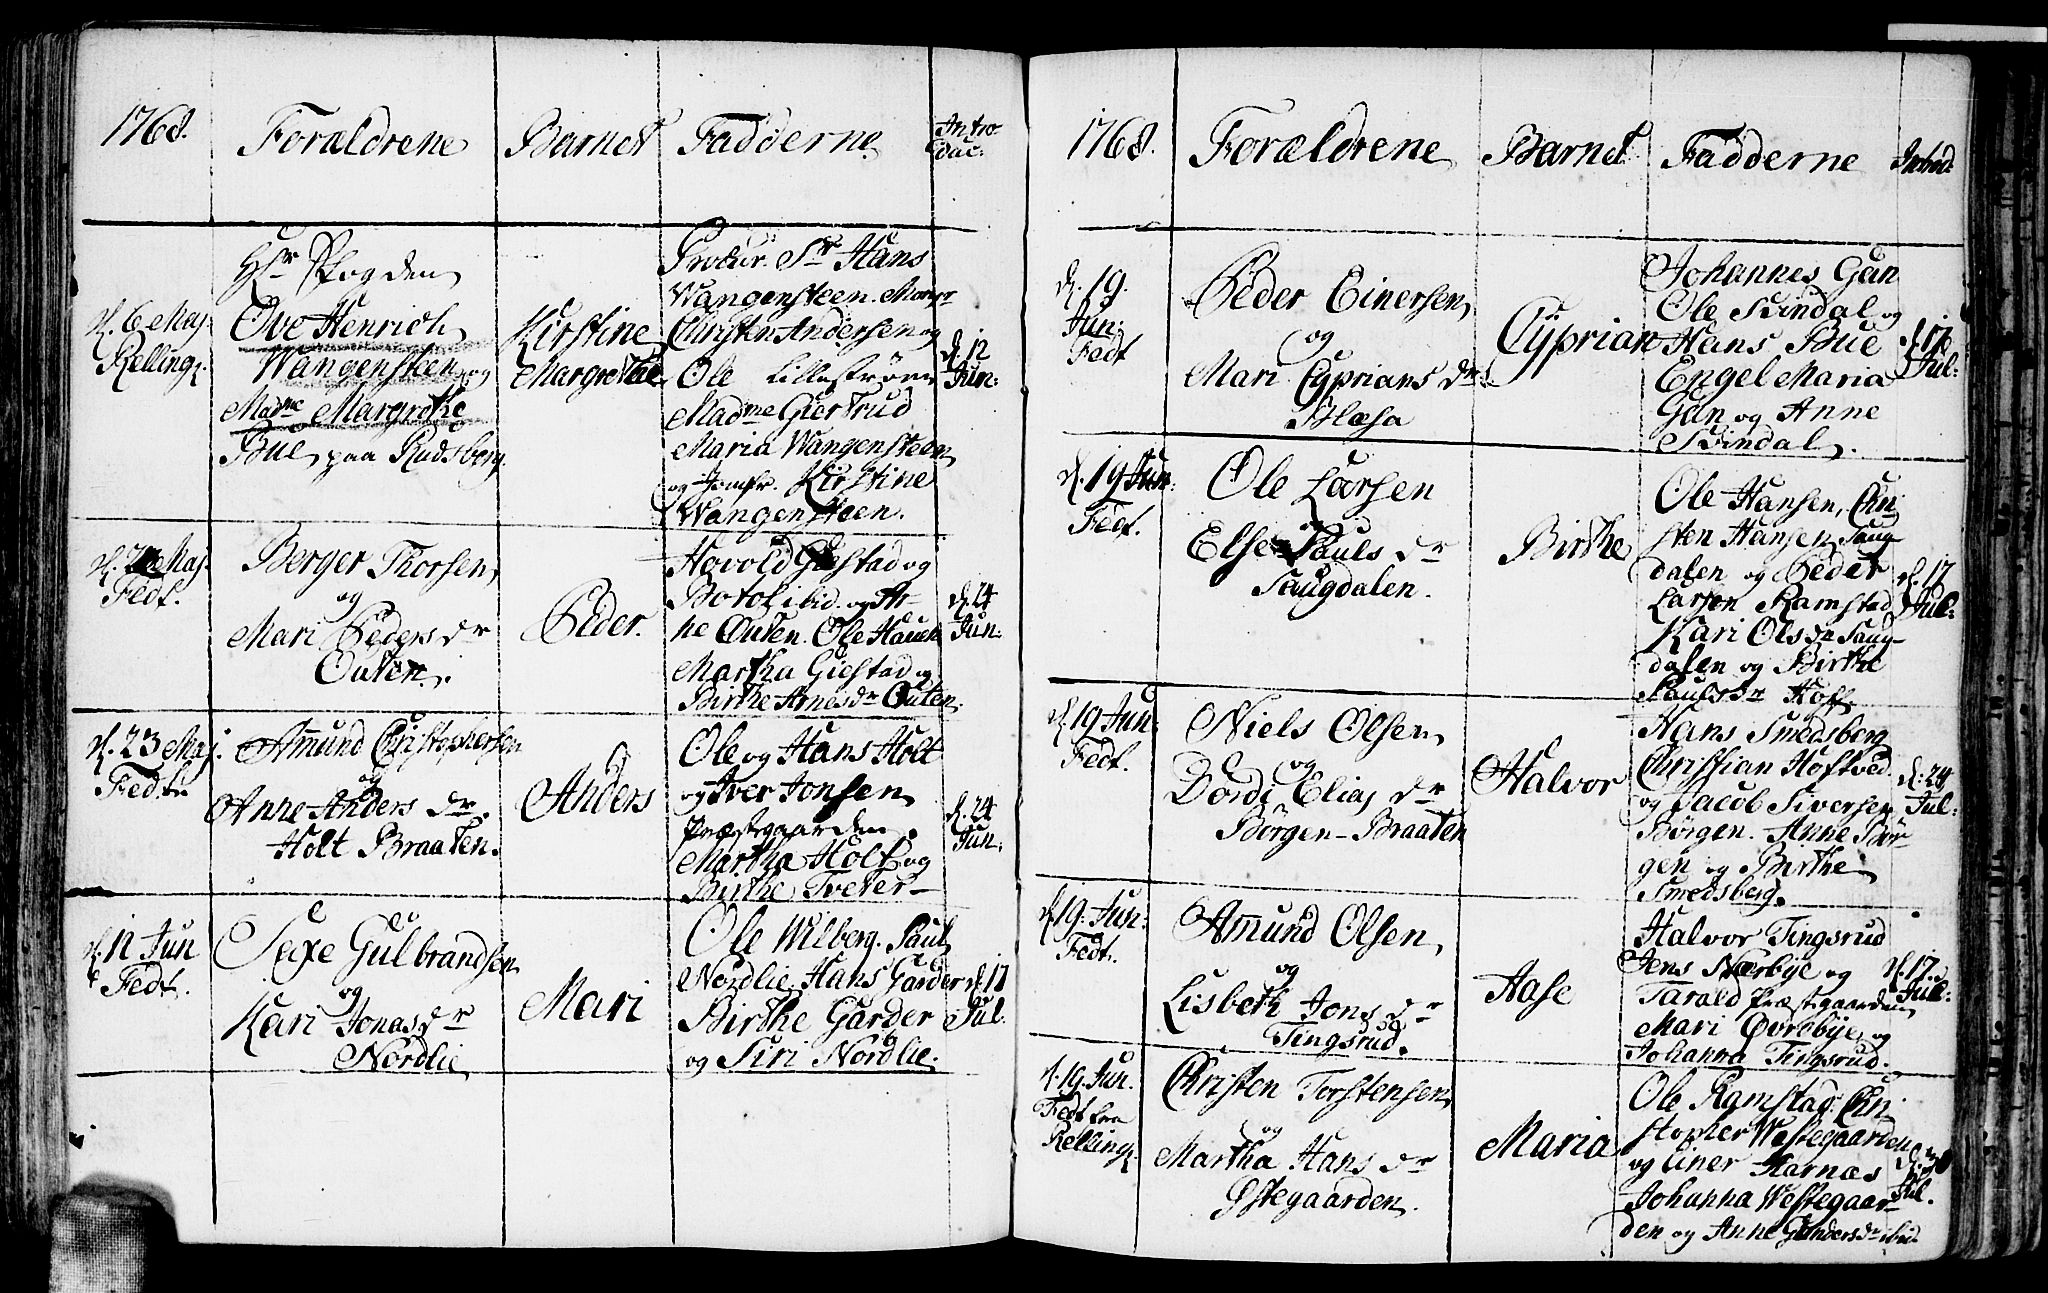 1768.
Forældrene
Barnet
Fadderne
Intro
duc:
d. 6 Maj.
Relling.
Hr Fogden
Ove Henrich
Wangensteen og
Madme Margrethe
Bue paa Rudsberg.
Kirstine
Margrethe
Procur. Sr Hans
Wangensteen. Monsr
Christen Andersen og
Ole Lillestrøm
Madme Giertrud
Maria Wangensteen
og Jomfr. Kirstine
Wangensteen.
d. 12
Jun:
Maj.
Fedt.
Berger Thorsen
og
Mari Peders dr
Outen.
Peder.
Hovold Giestad og
Botof ibid. og Ar-
ne Outen. Ole Hauen
Martha Giestad og
Birthe Arnes dr Outen.
d. 24
Jun:
d. 23 Maj.
Fedt
Amund Christophersen
og
Anne Anders dr.
Holt Braaten.
Anders
Ole og Hans Holt
og Iver Jonsen
Præstegaarden.
Martha Holt og
Birthe Tveter
d. 24
Jun:
d. 12 Jun
Fedt.
Gulbrandsen
og
Kari Jonas dr
Nordlie
Mari
Ole Wilberg. Paul
Nordlie. Hans Garder
Birthe Garder
og Siri Nordlie.
d. 17
Jul:
1768.
Forældrene
Barnet
Fadderne
Introd:
d. 19.
Jun:
Fedt
Peder Einersen
og
Mari Cyprians dr
Blæsa
Cyprian
Johannes Gan
Ole Svindal og
Hans Bue
Engel Maria
Gan og Anne
Svindal.
d. 17
Jul:
d. 19 Jun:
Fedt.
Ole Larsen
og
Else Pauls dr
Saugdalen.
Birthe
Ole Hansen, Chri-
sten Hansen Saug-
dalen og Peder
Larsen Ramstad
Kari Ols dr Saug-
dalen og Birthe
Pauls dr Hoff.
d. 17
Jul:
d. 19 Jun:
Fedt.
Niels Olsen
og
Dordi Elias dr
Børgen-Braaten
Halvor
Hans Smedsberg
Christian Hoftved
og Jacob Siversen
Børgen. Anne Bør-
gen og Birthe
Smedsberg.
d. 24
Jul:
d. 19. Jun:
Fedt.
Amund Olsen
og
Lisbeth Jons dr
Tingsrud.
Aase
Halvor Tingsrud
Jens Nærbye og
Tarald Præstegaarden
Mari Øvrebye og
Johanna Tingsrud.
d. 17.
Jul:
d. 19. Jun.
Fedt fra
Relling.
Christen Torstensen
og
Martha Hans dr
Østegaarden.
Maria
Ole Ramstad. Chri-
stopher Westegaarden
og Einer Harnæs
Johanna Westegaar-
den og Anne Gundersdr ibid.
Jul.